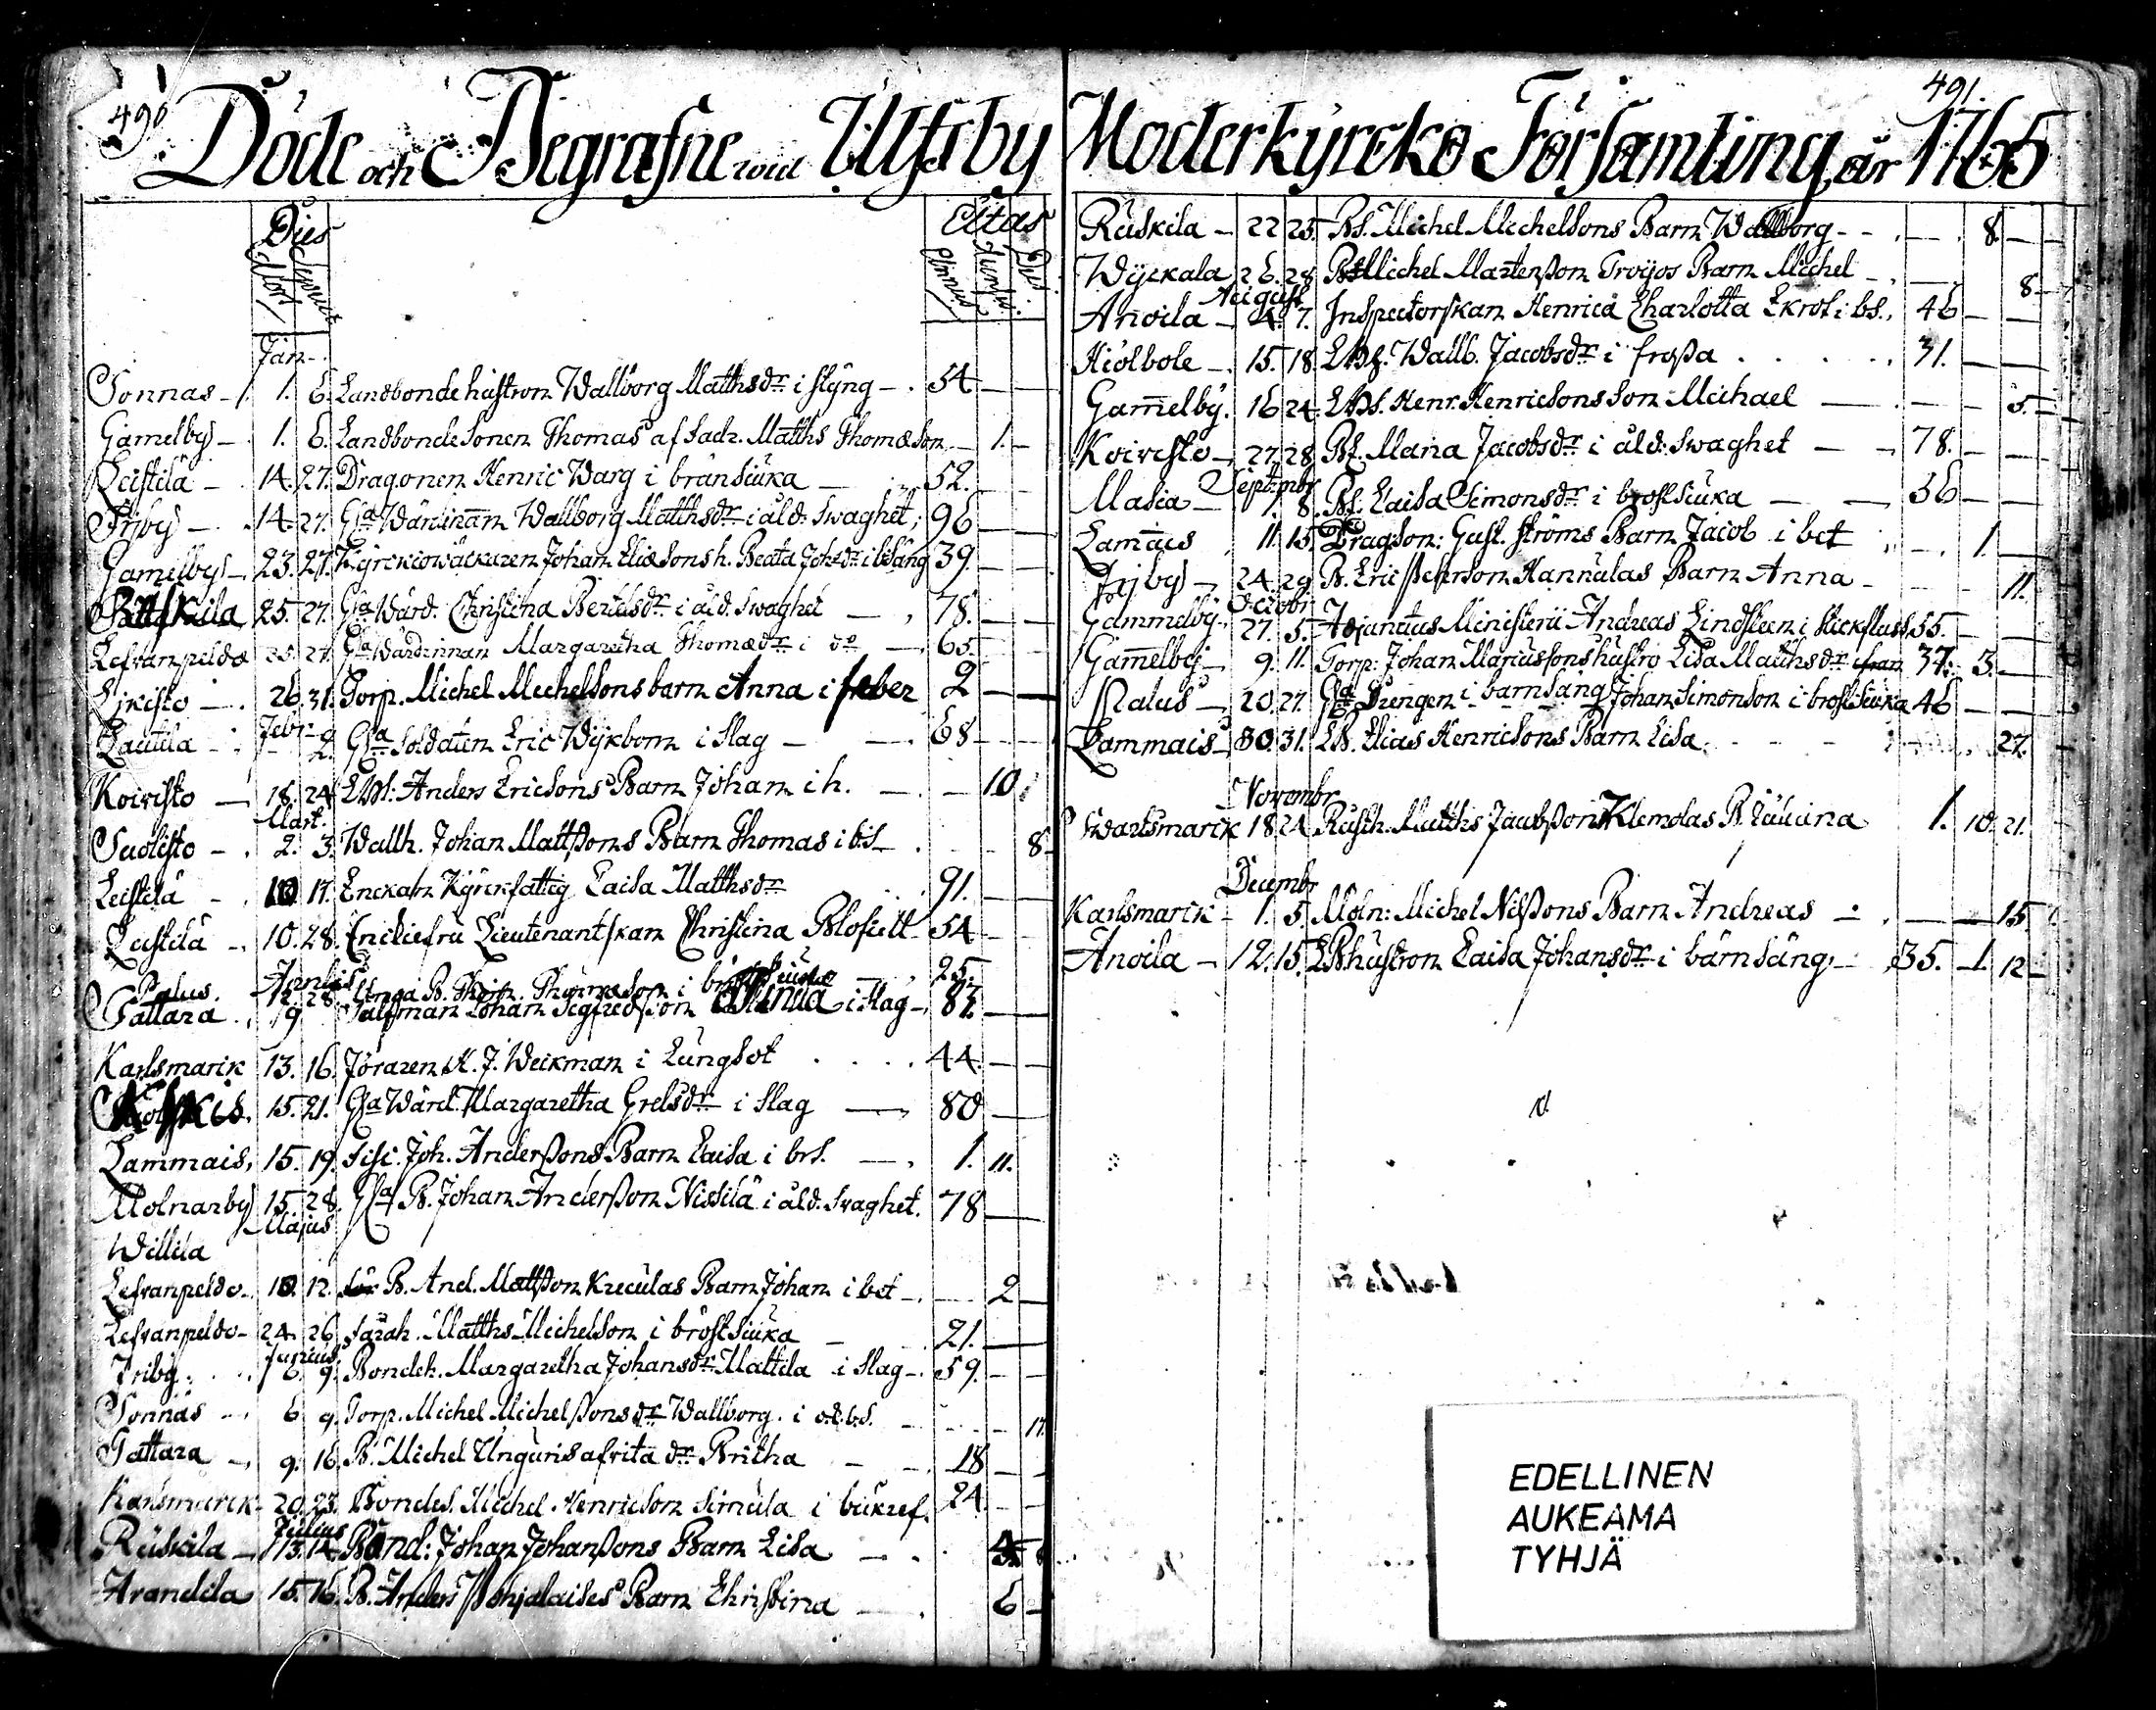 490
Döde och Begrafne wid Ulfsby
Dies
Mort. Sepult.
Ætas
Annus. Mensis. Dies.
Jan.
Sonnas - 1. 6. Landbondehustron Wallborg Matthsdr i styng - 54 - -
Gamelby - 1. 6. Landbonde Sonen Thomas af Sadr. Matths Thomæson - 1. -
Leistilä - 14. 27. Dragonen Henric Warg i bränsiuka - 52.
Friby - 14. 27. Gla Wärdinan Wallborg Matthsdr i åld. Swaghet, 96 -
Gamelby - 23. 27. Kyrckiowäckaren Johan Eliæsons h. Beata Johsdr i bsäng 39. -
Ruskila 25. 27. Gla Wärd. Christina Bertelsdr i åld. Swaghet - 78. -
Lefvanpeldo 25. 27. Gla Wärdinnan Margaretha Thomædr i do - 65.
26. 31. Torp. Michel Michelsons barn Anna i feber 2 -
Febr.
Lautila - 2. Gla Soldaten Eric Wykborn i Slag - 68 -
Koivisto - 18. 24. LBd: Anders Ericsons Barn Johan i h. - - 10.
Mart.
Suolisto - 2. 3. Wallh. Johan Mattssons Barn Thomas i bs - 8
Leistilä - 10 17. Enckan Kyrckfattig Caisa Matthsdr 91. -
Leistilä - 10. 28. Enckiefru Lieutenantskan Christina Blofield 54 -
Aprilis
Palus. 12. 28. Unga B. Thom. Thomæson i bröstsiuka - 25.
Tattara 9 Talsman Johan Segfredsson i Slag - 87. -
Karlsmarck 13. 16. Föraren H. J. Weikman i Lungsot 44. -
15. 21. Gla Wärd. Margaretha Grelsdr i Slag - 80 -
Lammais, 15. 19. fisc. Joh. Anderssons Barn Caisa i brs. - 1. 11.
Molnarby 15. 28. Gla B. Johan Andersson Nissilä i åld. Svaghet. 78 -
Majus
Willila
Lefvanpeldo - 10. 12. B. And. Mattsson Kreculas Barn Johan i bet - 2 -
Lefvanpeldo - 24. 26. Matths Michelson i bröstsiuka - 21. -
Junius
Friby 6. 9. Bondeh. Margaretha Johansdr Mattila i Slag - 59. -
Sonnäs - 6 9. Torp. Michel Michelssons dr Wallborg. i - 17.
Tattara - 9. 16. B. Michel Unguris afvita dr Britha - 18 -
Karlsmarck - 20. 23. Bondes. Michel Henricson Simula i bukref. 24. -
Julius
Ruskila - 13. 14. Bond: Johan Johanssons Barn Lisa -
Arandila 15. 16. B. Anders Pohjalaises Barn Christina - 6 -
491.
Moderkyrcko Församling, år 1765
Ruskila - 22 25. Bs. Michel Michelsons Barn Wallborg - - 8. -
Wyckala 26. 28 Bs Michel Martensson Troijos Barn Michel - 8 -
August
Anoila - 4. 7. Inspectorskan Henrica Charlotta Ekrot i bs. 46 -
Hiolbole - 15. 18. LBh. Wallb. Jacobsdr i frossa 31. -
Gamelby. 16 24. LBd. Henr. Henricsons Son Michael - 5. -
Koivisto - 27. 28 Bh. Maria Jacobsdr i åld. Swaghet - 78. -
Septembr
Masia - 1. 8. Bh. Caisa Simonsdr i bröstsiuka - 36 -
Lamais 11. 15. Dragson: Gust. Ströms Barn Jacob i bet - 1. -
Friby - 24. 29 B. Eric Hannulas Barn Anna - 11.
Octobr
Gammelby - 27. 5. Adjunctus Ministerii Andreas Lindsteen i Stickfluss 55. -
Gamelby - 9. 11. Torp: Johan Mariussons hustro Lisa Matthsdr 37. 3. -
i barnsäng
Palus - 20. 27. Gla Drengen Johan Simonson i bröstsiuka 46 -
Lammais - 30. 31. LB. Elias Henricsons Barn Lisa 27.
Novembr
Swartsmarck 18 24 Rusth. Matths Jacobsson Klemolas B. 1. 10. 21.
Decembr
Karlsmarck - 1. 5. Moln: Michel Nilssons Barn Andreas - - 15
Anoila - 12. 15. LBhustron Caisa Johansdr i barnsäng - 35. 1. 12
EDELLINEN
AUKEAMA
TYHJÄ